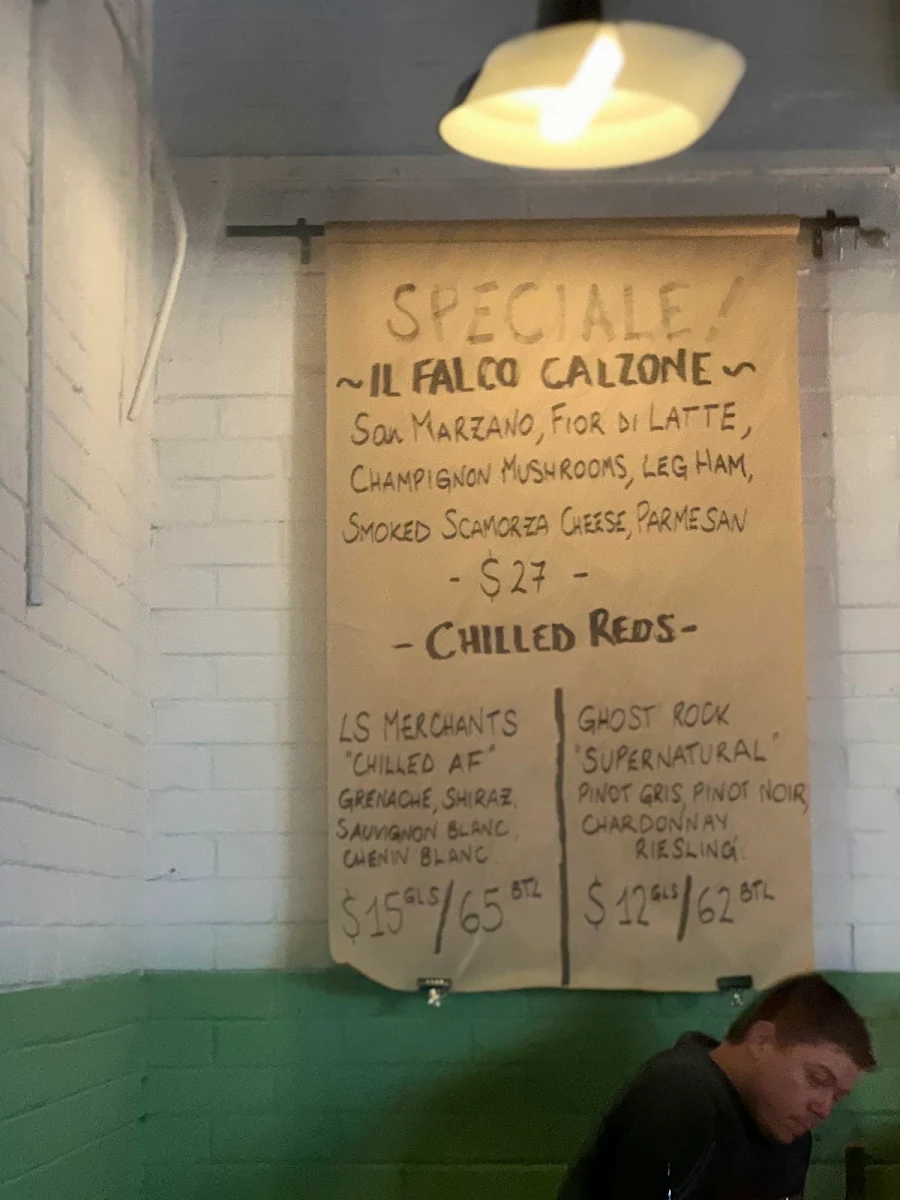 SPECIALE!
~IL FALCO CALZONE~
San MARZANO, FIOR DI LATTE,
CHAMPIGNON MUSHROOMS, LEG HAM,
SMOKED SCAMORZA CHEESE, PARMESAN
- $27 -
- CHILLED REDS-
LS MERCHANTS
"CHILLED AF"
GRENACHE, SHIRAZ,
SAUVIGNON BLANC,
CHENIN BLANC
$15 GLS/65 BTL
GHOST ROCK
"SUPERNATURAL"
PINOT GRIS, PINOT NOIR,
CHARDONNAY
RIESLING.
$12 GLS/62 BTL